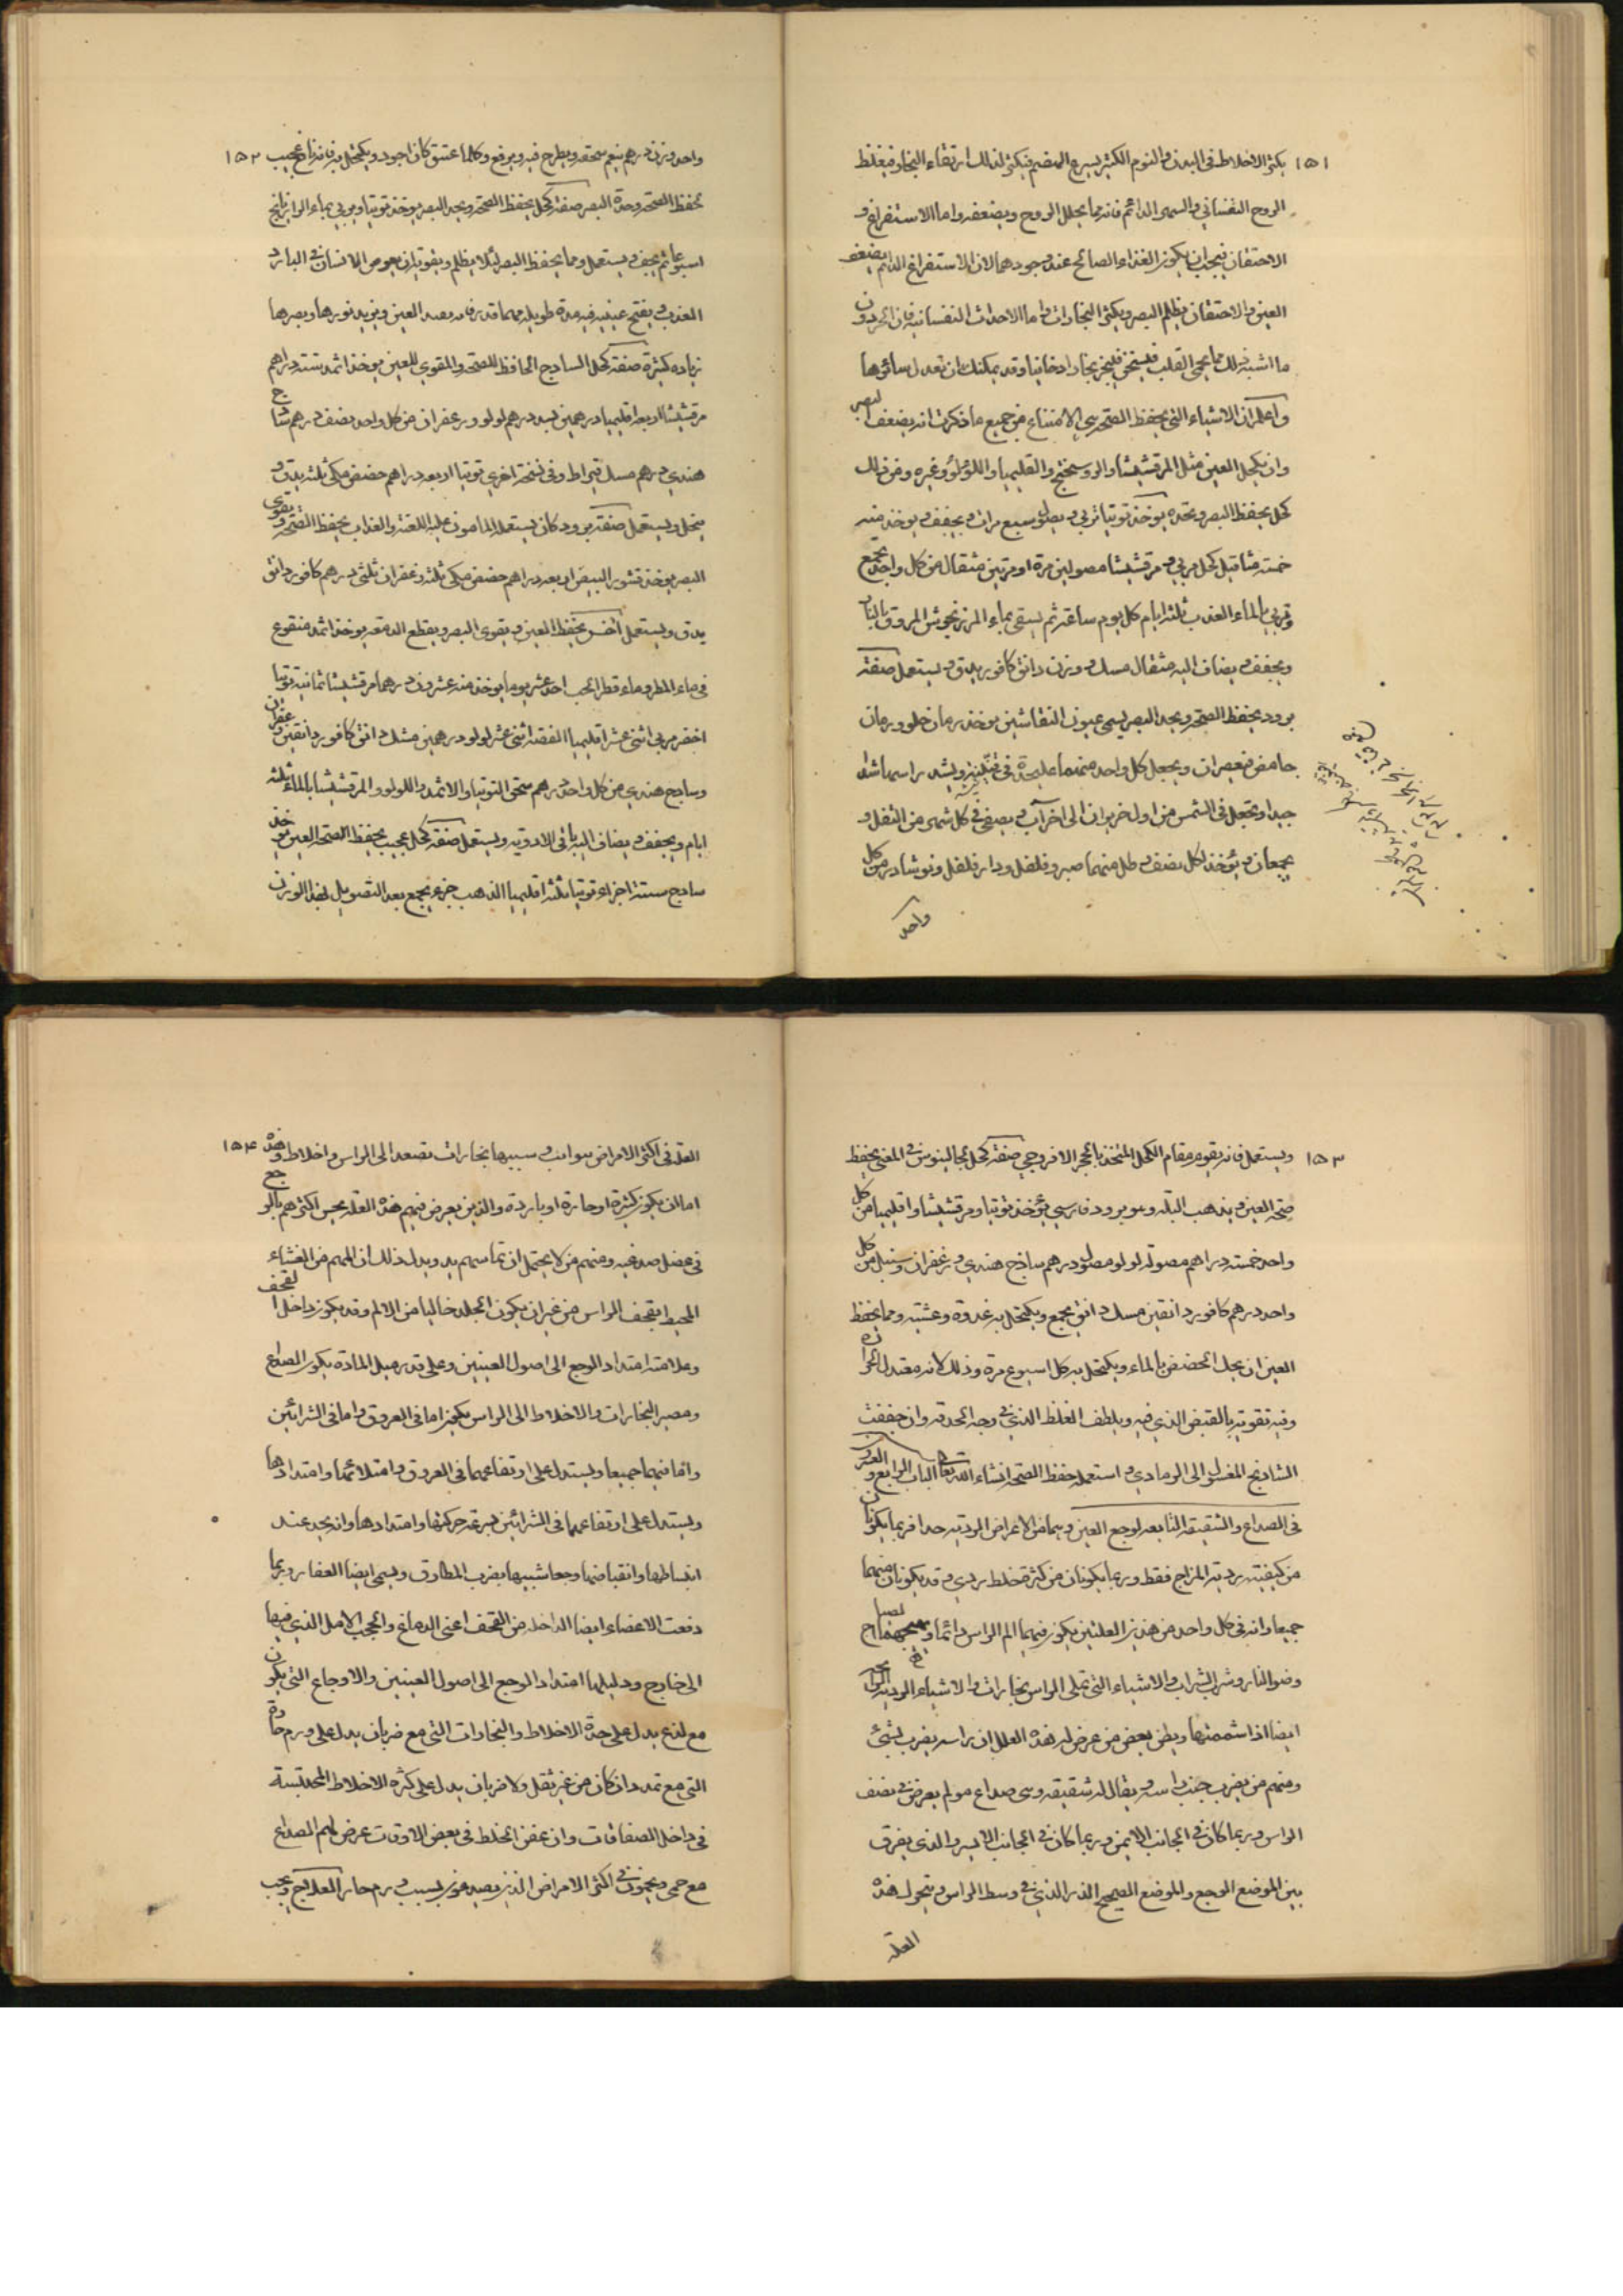 ١٥١
يكثر الاخلاط في البدن والنوم الكثير يسرع الهضم فيكثر لذلك ارتقاء البخار فيغلظ
الروح النفساني والسهر الدائم فانه مما يحلل الروح ويضعفه واما الاستفراغ و
الاحتقان فيجب ان يكون الغذاء الصالح عند وجودهما لان الاستفراغ الدائم يضعف
العين والاحتقان يظلم البصر ويكثر البخارات واما الاحداث النفسانية فان الحرد و
ما اشبه ذلك مما يحمي القلب فيسخن فيبخر بخارا دخانيا وقد يمكنك ان تعدل سائرها
واعلم ان الاشياء التي يحفظ الصحة هي الامتناع من جميع ما ذكرت انه يضعف البصر
وان يكحل العين مثل المرقشيشا والروسختج والقليميا واللؤلؤ وغيره ومن ذلك
كحل يحفظ البصر ويحده يوخذ توتيا تربي و يصول سبع مرات و يجفف و يوخذ منه
خمسة مثاقيل كحل مربي و مرقشيشا مصولين مرة او مرتين مثقال من كل واحد يجمع
وتربي بالماء العذب ثلثة ايام كل يوم ساعة ثم يسقي بماء المرزنجوش المروق بالنار
ويجفف و يضاف اليه مثقال مسك و وزن دانق كافور يدق و يستعمل صفة
برود يحفظ الصحة ويحد البصر يسمي عيون النقاشين يوخذ رمان حلو و رمان
حامض فيعصران ويجعل كل واحد منهما علي حدة في قنينة ويشد راسها شدا
جيدا ويجعل في الشمس من اول حزيران الي اخر آب و يصفي في كل شهر من الثفل و
يجمعان و يؤخذ لكل نصف رطل منهما صبر و فلفل و دار فلفل ونوشادر من كل
واحد
١٥٢
واحد وزن درهم ينعم سحقه ويطرح فيه ويرفع وكلما عتق كان اجود ويكتحل به فانه نافع عجيب
يحفظ الصحة وحدة البصر صفة كحل يحفظ الصحة ويحد البصر يوخذ توتيا ويربي بماء الرازيانج
اسبوعا ثم يجفف و يستعمل ومما يحفظ البصر لئلا يظلم و يقويه ان يغوص الانسان في البارد
العذب و يفتح عينيه فيه مدة طويلة مهما قدر فانه يصد العين ويزيد نورها وبصرها
زيادة كثيرة صفة كحل الساذج الحافظ للصحة والمقوي للعين يوخذ اثمد ستة دراهم
مرقشيشا اربعة اقليميا درهمين بسد درهم لولو وزعفران من كل واحد نصف درهم ساذج
هندي درهم مسك قيراط وفي نسخة اخري توتيا اربعة دراهم حضض مكي ثلثة يدق و
ينخل ويستعمل صفة برود كان يستعمله المامون عليه اللعنة والعذاب يحفظ الصحة و يقوي
البصر يوخذ قشور البيض اربعة دراهم حضض مكي ثلثة زعفران ثلثي درهم كافور دانق
يدق ويستعمل آخر يحفظ العين و يقوي البصر ويقطع الدمعة يوخذ اثمد منقوع
في ماء المطر و ماء قطر الحب احد عشر يوما يوخذ منه عشرون درهما مرقشيشا ثمانية توتيا
اخضر مربي اثني عشر اقليميا الفضة اثني عشر لولو درهمين مسك دانق كافور دانقين زعفران
وساذج هندي من كل واحد درهم سحق التوتيا والاثمد واللولو والمرقشيشا بالماء ثلثة
ايام ويجفف و يضاف اليه باقي الادوية ويستعمل صفة كحل عجيب يحفظ الصحة العين يوخذ
ساذج ستة اجزاء توتيا ثلثة اقليميا الذهب جزء يجمع بعد التصويل بهذا الوزن
١٥٣
ويستعمل فانه يقوم مقام الكحل المتخذ بالحجر الافروجي صفة كحل لجالينوس في المغني يحفظ
صحة العين و يذهب البلة وهو برود فارسي يؤخذ توتيا ومرقشيشا واقليميا من كل
واحد خمسة دراهم مصولة لولو مصول درهم ساذج هندي و زعفران وسنبل من كل
واحد درهم كافور دانقين مسك دانق يجمع ويكتحل به غدوة وعشية ومما يحفظ
العين ان يحل الحضض بالماء ويكتحل به كل اسبوع مرة وذلك لانه معتدل الحرارة
وفيه تقوية بالقبض الذي فيه ويلطف الغلظ الذي في وجه الحدقة وان جففت
الشاذنج المغسول الي الرمادي و استعمله حفظ الصحة انشاء الله تعالي الباب الرابع والعشرون
في الصداع والشقيقة التابعة لوجع العين وهما من الاعراض الردية جدا فربما يكونان
من كيفية ردية المزاج فقط وربما يكونان من كثرة خلط ردي و قد يكونان منهما
جميعا وانه في كل واحد من هذين العلتين يكون فيهما الم الراس دائما ويهيجهما الصياح
وضوالنار وشرب الشراب والاشياء التي تملي الراس بخارات والاشياء الردية الرائحة
ايضا اذا شممتها ويظن بعض من عرض له هذه العلل ان راسه يضرب بشيئ
ومنهم من يضرب جنب راسه و يقال له شقيقة وهي صداع مولم يعرض في نصف
الراس وربما كان في الجانب الايمن وربما كان في الجانب الايسر والذي يفرق
بين الموضع الوجع والموضع الصحيح الدرز الذي في وسط الراس و يتحول هذه
العلة
١٥٤
العلة في اكثر الامراض بنوائب و سببها بخارات تصعد الي الراس و اخلاط وهذه
اما ان يكون كثيرة او حارة او باردة والذين يعرض فيهم هذه العلة يحس اكثرهم بالوجع
في عضل صدغيه ومنهم من لا يحتمل ان تماسهم يد ويدل ذلك ان المهم من الغشاء
المحيط بقحف الراس من غير ان يكون الجلد خاليا من الالم وقد يكون داخل القحف
وعلامته امتداد الوجع الي اصول العينين وعلي قدر ميل المادة يكون الصداع
ومصير البخارات والاخلاط الي الراس يكون اما في العروق واما في الشرائين
واما فيهما جميعا ويستدل علي ارتفاعهما في العروق و امتلائها وامتدادها
ويستدل علي ارتفاعهما في الشرائين بسرعة حركتها وامتدادها وانه يجد عند
انبساطها وانقباضها وجعا شبيها بضرب المطارق ويسمي ايضا العفار وربما
دفعت الاعضاء ايضا الداخلة من القحف اعني الدماغ والحجب الامل الذي فيها
الي خارج ودليلها امتداد الوجع الي اصول العينين والاوجاع التي يكون
مع لذع يدل علي حدة الاخلاط والبخارات التي مع ضربان يدل علي ورم حار
التي مع تمدد ان كان من غير ثقل ولا ضربان يدل علي كثرة الاخلاط المحتبسة
في داخل الصفاقات وان عفن الخلط في بعض الاوقات عرض لهم الصداع
مع حمي ويخبون في اكثر الامراض الذين يصيبهم بسبب ورم حار العلاج ويجب